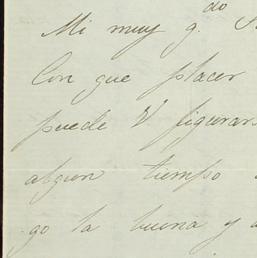 Mi muy q.do S
Con que placer
puede V figurars
algun tiempo
go la buena y a